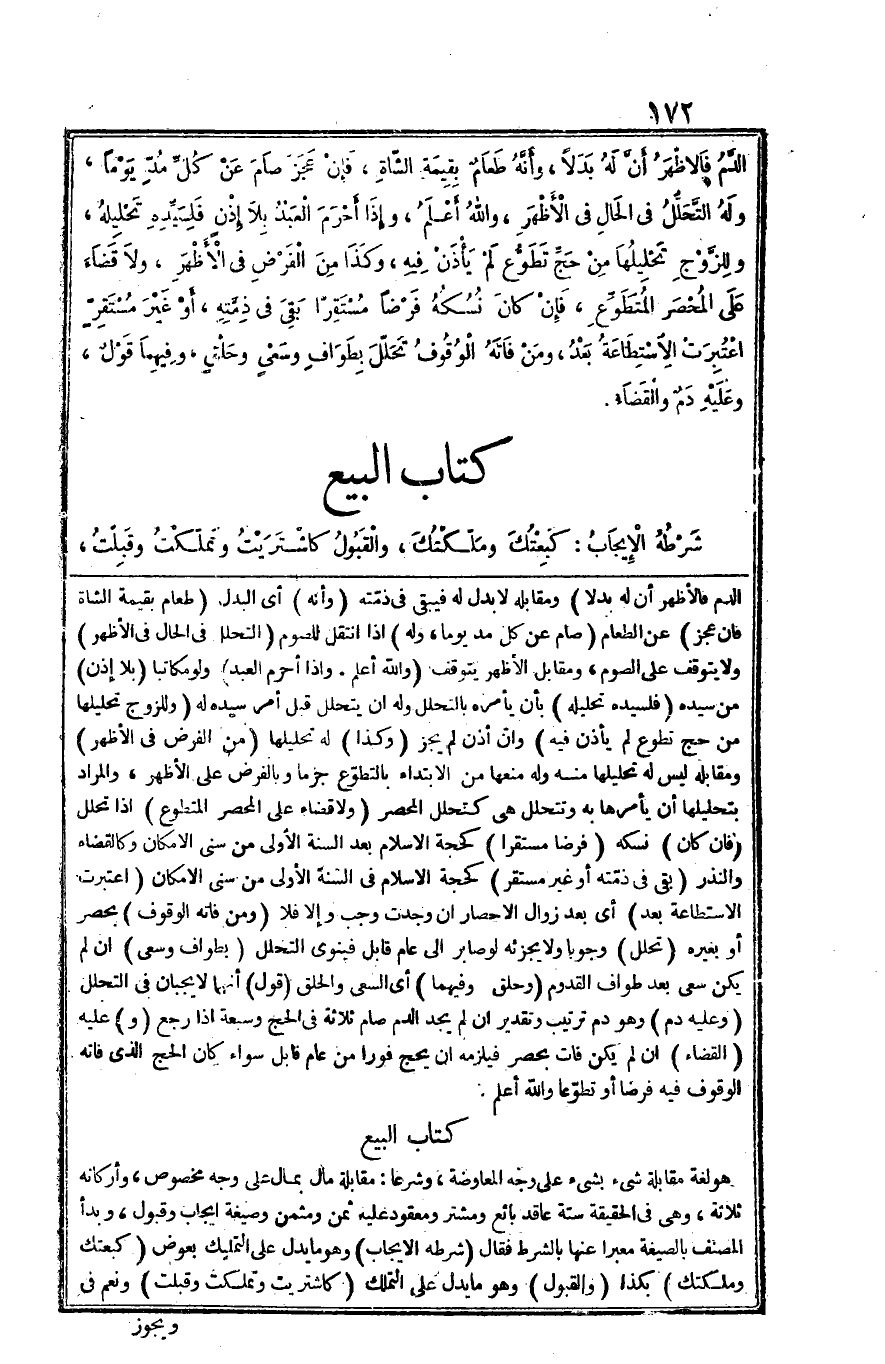 ١٧٢
الدَّمُ فَالاظْهَرُ أَنَّ لَهُ بَدَلاً ، وأَنَّهُ طَعَامٌ بِقِيمَةِ الشَّاةِ ، فَإِنْ عَجَزَ صَامَ عَنْ كُلِّ مُدٍّ يَوْمًا ،
ولَهُ التَّحَلُّلُ فى الحَالِ فى الْأَظْهَرِ ، واللهُ أَعْلَمُ ، وإِذَا أَحْرَمَ الْعَبْدُ بِلاَ إِذْنٍ فَلِسَيِّدِهِ تَحْلِيلُهُ ،
ولِلزَّوْجِ تَحْلِيلُهَا مِنْ حَجِّ تَطَوُّعٍ لَمْ يَأْذَنْ فِيهِ ، وكَذَا مِنَ الْفَرْضِ فى الْأَظْهَرِ ، ولاَ قَضَاءَ
عَلَى الْمُحْصَرِ الْمُتَطَوِّعِ ، فَإِنْ كَانَ نُسُكُهُ فَرْضاً مُسْتَقِرًّا بَقِىَ فى ذِمَّتِهِ ، أَوْ غَيْرَ مُسْتَقِرٍّ
اعْتُبِرَتْ الِاسْتِطَاعَةُ بَعْدُ ، ومَنْ فَاتَهُ الْوُقُوفُ تَحَلَّلَ بِطَوَافٍ وسَعْىٍ وحَلْقٍ ، وفِيهِمَا قَوْلٌ ،
وعَلَيْهِ دَمٌ والْقَضَاءُ .
كتاب البيع
شَرْطُهُ الْإِيجَابُ : كَبِعْتُكَ ومَلَّكْتُكَ ، والْقَبُولُ كَاشْتَرَيْتُ وتَمَلَّكْتُ وقَبِلْتُ ،
الدم فالأظهر أن له بدلا ) ومقابله لا بدل له فيبقى فى ذمّته ( وأنه ) أى البدل ( طعام بقيمة الشاة
فان عجز ) عن الطعام ( صام عن كل مد يوما ، وله ) اذا انتقل للصوم ( التحلل فى الحال فى الأظهر )
ولا يتوقف على الصوم ، ومقابل الأظهر يتوقف ( والله أعلم . واذا أحرم العبد ) ولو مكاتبا ( بلا إذن )
من سيده ( فلسيده تحليله ) بأن يأمره بالتحلل وله ان يتحلل قبل أمر سيده له ( وللزوج تحليلها
من حج تطوع لم يأذن فيه ) وان أذن لم يجز ( وكذا ) له تحليلها ( من الفرض فى الأظهر )
ومقابله ليس له تحليلها منه وله منعها من الابتداء بالتطوّع جزما وبالفرض على الأظهر ، والمراد
بتحليلها أن يأمرها به وتتحلل هى كتحلل المحصر ( ولا قضاء على المحصر المتطوع ) اذا تحلل
( فان كان ) نسكه ( فرضا مستقرا ) كحجة الاسلام بعد السنة الأولى من سنى الامكان وكالقضاء
والنذر ( بقى فى ذمّته أو غير مستقر ) كحجة الاسلام فى السنة الأولى من سنى الامكان ( اعتبرت
الاستطاعة بعد ) أى بعد زوال الاحصار ان وجدت وجب وإلا فلا ( ومن فاته الوقوف ) بحصر
أو بغيره ( تحلل ) وجوبا ولا يجزئه لو صابر الى عام قابل فينوى التحلل ( بطواف وسعى ) ان لم
يكن سعى بعد طواف القدوم ( وحلق وفيهما ) أى السعى والحلق ( قول ) أنهما لا يجبان فى التحلل
( وعليه دم ) وهو دم ترتيب وتقدير ان لم يجد الدم صام ثلاثة فى الحج وسبعة اذا رجع ( و ) عليه
( القضاء ) ان لم يكن فات بحصر فيلزمه ان يحج فورا من عام قابل سواء كان الحج الذى فاته
الوقوف فيه فرضا أو تطوّعا والله أعلم .
كتاب البيع
هو لغة مقابلة شىء بشىء على وجه المعاوضة ، وشرعا : مقابلة مال بمال على وجه مخصوص ، وأركانه
ثلاثة ، وهى فى الحقيقة ستة عاقد بائع ومشتر ومعقود عليه ثمن ومثمن وصيغة ايجاب وقبول ، وبدأ
المصنف بالصيغة معبرا عنها بالشرط فقال ( شرطه الايجاب ) وهو ما يدل على التمليك بعوض ( كبعتك
وملكتك ) بكذا ( والقبول ) وهو ما يدل على التملك ( كاشتريت وتملكت وقبلت ) ونعم فى
ويجوز